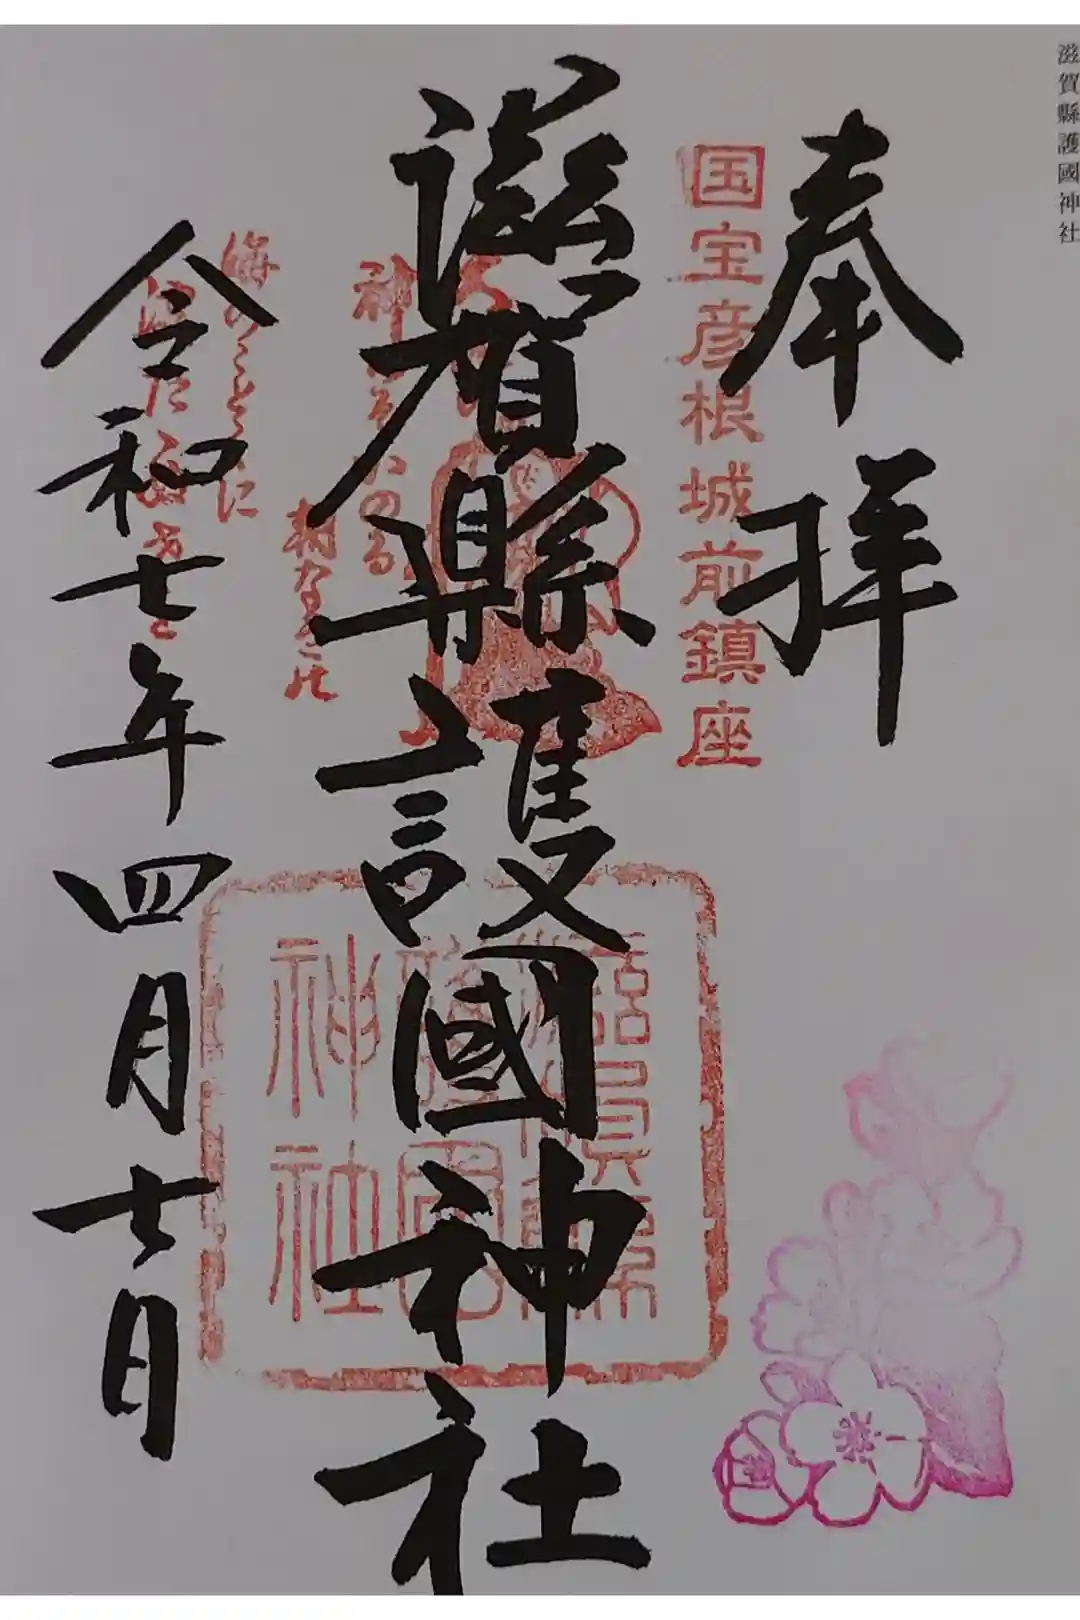 滋賀縣護國神社
奉拝
国宝彦根城前鎮座
滋賀縣護國神社
令和七年四月七日
滋賀縣
護國
神社